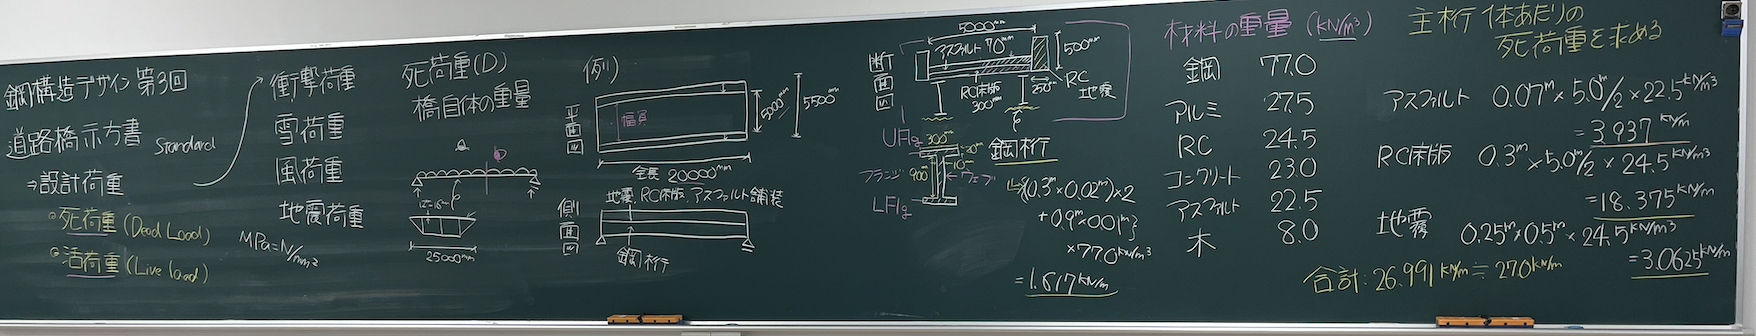 鋼構造デザイン 第3回
道路橋示方書 Standard
⇒設計荷重
死荷重 (Dead Load)
活荷重 (Live load)
衝撃荷重
雪荷重
風荷重
地震荷重
MPa=N/mm2
死荷重(D)
橋自体の重量
25000mm
例)
平面図
幅員
5000mm
5500mm
全長 20000mm
地覆、RC床版、アスファルト舗装
側面図
鋼桁
断面図
5000mm
アスファルト 70mm
500mm
RC床版
300mm
250mm
RC
地覆
UFlg
300mm
20mm
10mm
フランジ
900mm
ウェブ
LFlg
鋼桁
{(0.3m×0.02m)×2
+0.9m×0.01m}
×77.0kN/m3
=1.617kN/m
材料の重量 (kN/m3)
鋼 77.0
アルミ 27.5
RC 24.5
コンクリート 23.0
アスファルト 22.5
木 8.0
主桁1体あたりの
死荷重を求める
アスファルト 0.07m×5.0m/2×22.5kN/m3
=3.937kN/m
RC床版 0.3m×5.0m/2×24.5kN/m3
=18.375kN/m
地覆 0.25m×0.5m×24.5kN/m3
=3.0625kN/m
合計:26.991kN/m≒27.0kN/m